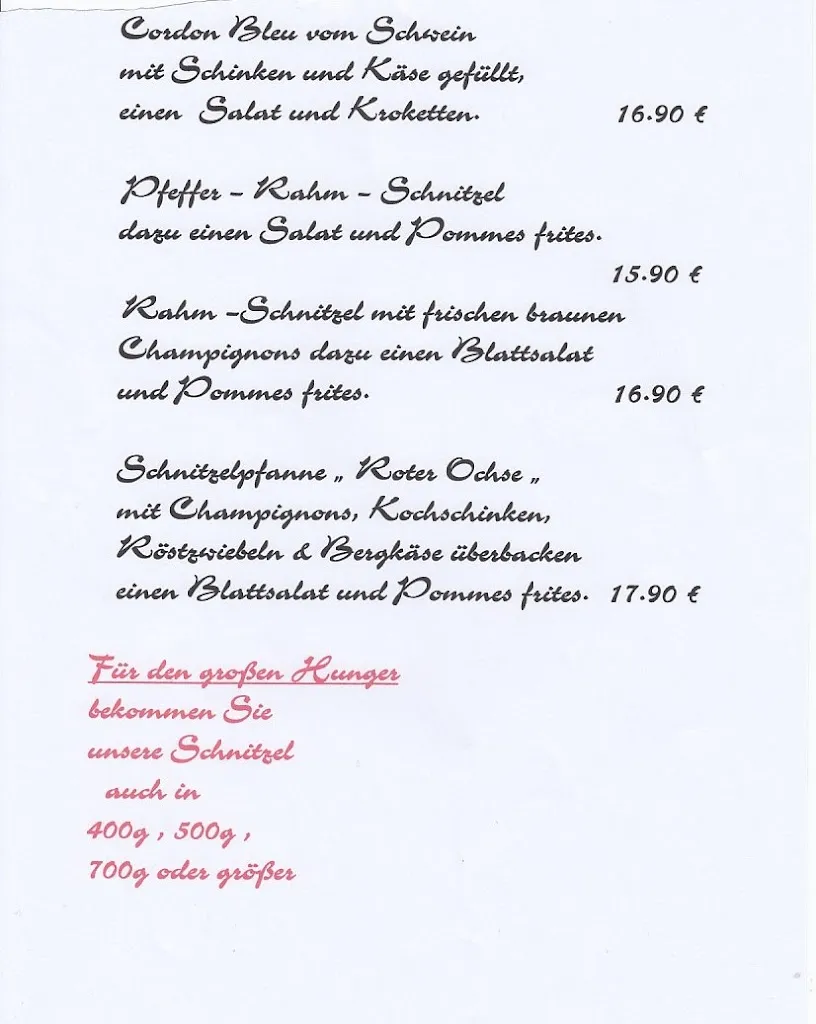 Cordon Bleu vom Schwein
mit Schinken und Käse gefüllt,
einen Salat und Kroketten. 16.90 €
Pfeffer - Rahm - Schnitzel
dazu einen Salat und Pommes frites.
15.90 €
Rahm -Schnitzel mit frischen braunen
Champignons dazu einen Blattsalat
und Pommes frites. 16.90 €
Schnitzelpfanne „ Roter Ochse „
mit Champignons, Kochschinken,
Röstzwiebeln & Bergkäse überbacken
einen Blattsalat und Pommes frites. 17.90 €
Für den großen Hunger
bekommen Sie
unsere Schnitzel
auch in
400g , 500g ,
700g oder größer